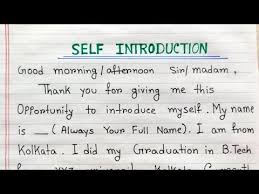 SELF INTRODUCTION
Good morning/afternoon Sir/madam,
Thank you for giving me this
Opportunity to introduce myself. My name
is __ (Always Your Full Name). I am from
Kolkata. I did my Graduation in B.Tech